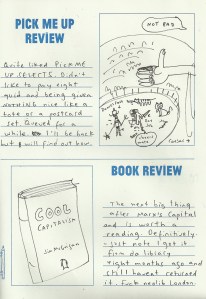 PICK ME UP
REVIEW
Quite liked PICK ME
UP SELECTS. Didn't
like to pay eight
quid and being given
NOTHING nice like a
tote or a postcard
set. Queued for a
while. I'll be back
but I will find out how.
NOT BAD
COOL
CAPITALISM
Jim McGuigan
BOOK REVIEW
The next big thing
after Marx's Capital
and is worth a
reading. Definitively.
Just note I got it
from da library
eight months ago and
still havent returned
it.